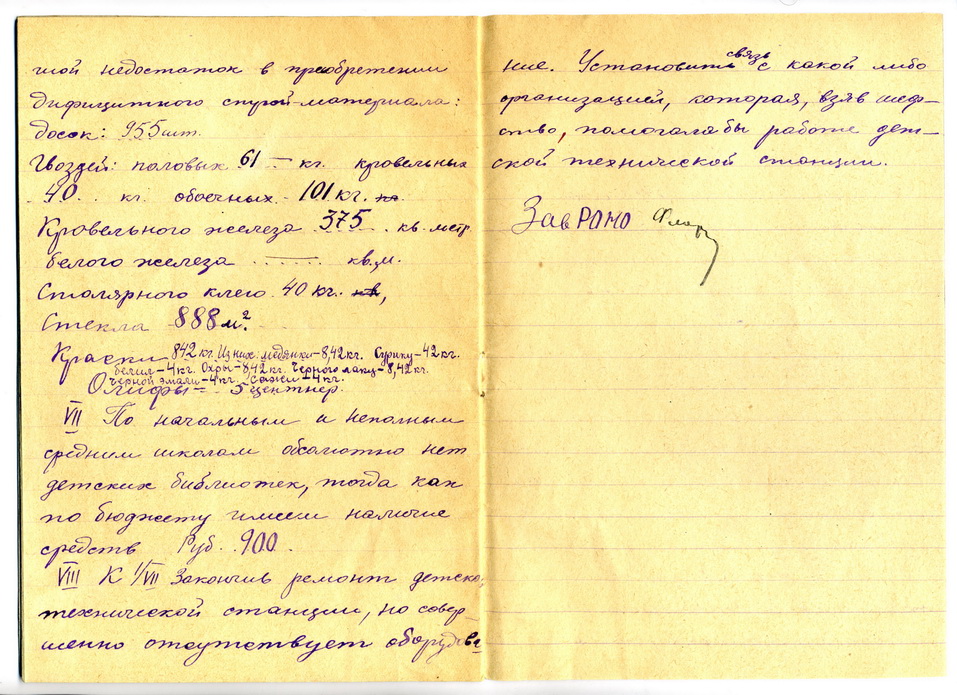 ной недостаток в приобретении
дифицитного строй-материала:
Досок: 955 шт.
Гвоздей: половых 61 — кг. кровельных
40.. кг. обоечных - 101 кг.
Кровельного железа 375.. кв. метр
белого железа ..—.. кв.м.
Столярного клею 40 кг.
Стекла 888 м².
Краски 842 кг Из них медянки - 8,42 кг. Сурику - 42 кг.
белил - 4 кг. Охры - 8,42 кг. Черного лаку - 8,42 кг.
Черной эмали - 4 кг. Сажи - 4 кг.
Олифы - 5 центнер.
VII По начальным и неполным
средним школам обсолютно нет
детских библиотек, тогда как
по бюджету имеем наличие
средств Руб. 900.
VIII К 1/VII Закончив ремонт детско,
технической станции, но совер-
шенно отсутствует оборудова
ние. Установить связь с какой либо
организацией, которая, взяв шеф-
ство, помогала бы работе дет-
ской технической станции.
Зав РОНО